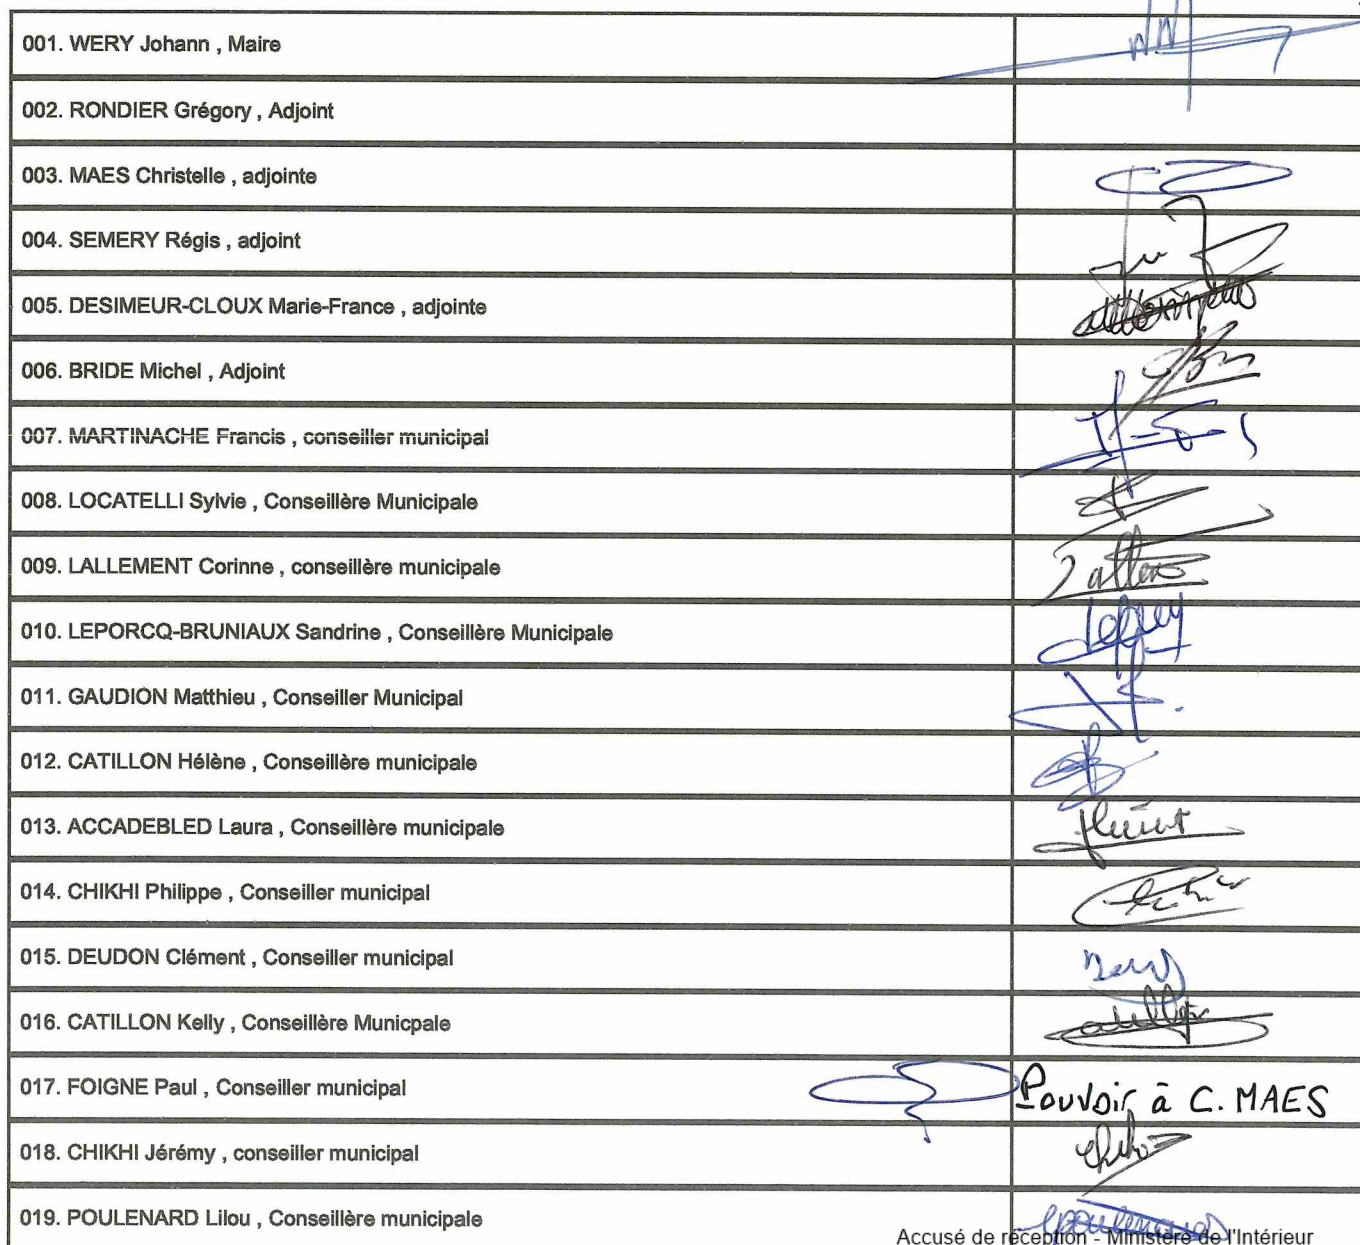 001. WERY Johann , Maire
002. RONDIER Grégory , Adjoint
003. MAES Christelle , adjointe
004. SEMERY Régis , adjoint
005. DESIMEUR-CLOUX Marie-France , adjointe
006. BRIDE Michel , Adjoint
007. MARTINACHE Francis , conseiller municipal
008. LOCATELLI Sylvie , Conseillère Municipale
009. LALLEMENT Corinne , conseillère municipale
010. LEPORCQ-BRUNIAUX Sandrine , Conseillère Municipale
011. GAUDION Matthieu , Conseiller Municipal
012. CATILLON Hélène , Conseillère municipale
013. ACCADEBLED Laura , Conseillère municipale
014. CHIKHI Philippe , Conseiller municipal
015. DEUDON Clément , Conseiller municipal
016. CATILLON Kelly , Conseillère Municpale
017. FOIGNE Paul , Conseiller municipal Pouvoir à C. MAES
018. CHIKHI Jérémy , conseiller municipal
019. POULENARD Lilou , Conseillère municipale
Accusé de réception - Ministère de l'Intérieur